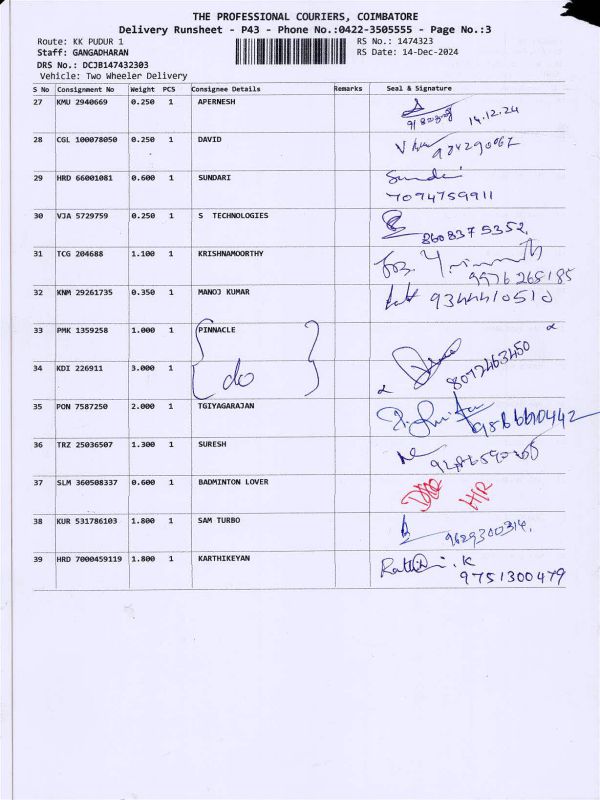 THE PROFESSIONAL COURIERS, COIMBATORE
Delivery Runsheet - P43 - Phone No.:0422-3505555 - Page No.:3
Route: KK PUDUR 1 RS No.: 1474323
Staff: GANGADHARAN RS Date: 14-Dec-2024
DRS No.: DCJB147432303
Vehicle: Two Wheeler Delivery
S No Consignment No Weight PCS Consignee Details Remarks Seal & Signature
27 KMU 2940669 0.250 1 APERNESH 14.12.24
28 CGL 100078050 0.250 1 DAVID
29 HRD 66001081 0.600 1 SUNDARI Sundari
7094759911
30 VJA 5729759 0.250 1 S TECHNOLOGIES
8608375352.
31 TCG 204688 1.100 1 KRISHNAMOORTHY
9976265185
32 KNM 29261735 0.350 1 MANOJ KUMAR 9344410510
33 PMK 1359258 1.000 1 PINNACLE
34 KDI 226911 3.000 1 do 8072463450
35 PON 7587250 2.000 1 TGIYAGARAJAN
9566610442
36 TRZ 25036507 1.300 1 SURESH
37 SLM 360508337 0.600 1 BADMINTON LOVER H/R
38 KUR 531786103 1.800 1 SAM TURBO 9629300314.
39 HRD 7000459119 1.800 1 KARTHIKEYAN
9751300479